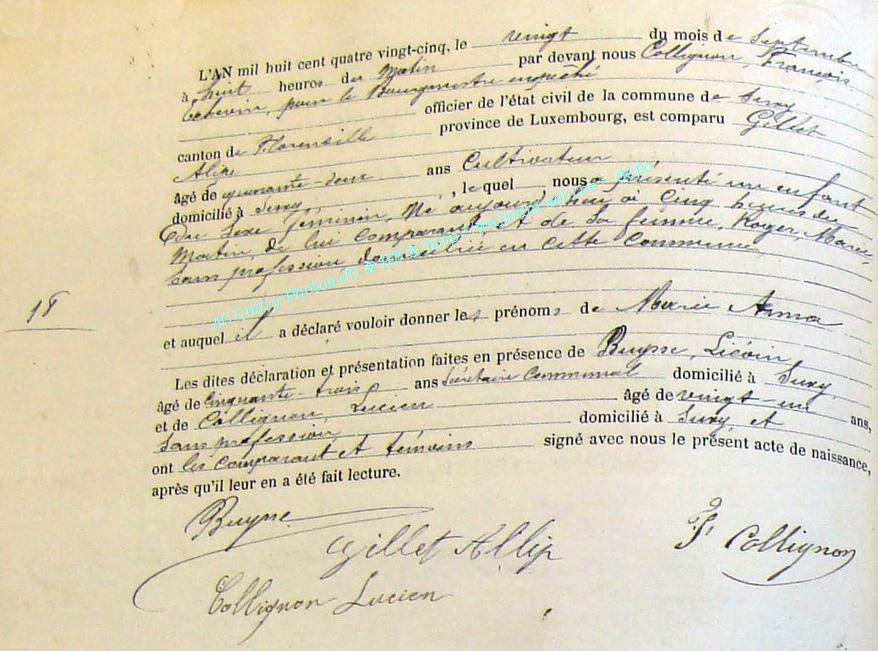 L'AN mil huit cent quatre vingt-cinq, le vingt du mois de Septembre
à huit heures du Matin par devant nous Collignon, François
Echevin, pour le Bourgmestre empêché
officier de l'état civil de la commune de Suxy
canton de Florenville province de Luxembourg, est comparu Gillet
Alix
âgé de quarante-deux ans Cultivateur
domicilié à Suxy, , le quel nous a présenté un enfant
du sexe féminin, Né aujourd'hui à Cinq heures du
Matin, de lui comparant et de sa femme, Roger, Marie,
sans profession domiciliée en cette Commune
18
et auquel il a déclaré vouloir donner les prénoms de Marie Anna
Les dites déclaration et présentation faites en présence de Buysse, Liévin,
âgé de Cinquante-trois ans Secrétaire Communal domicilié à Suxy,
et de Collignon, Lucien âgé de vingt-un ans,
sans profession, domicilié à Suxy, et
ont les comparant et témoins signé avec nous le présent acte de naissance,
après qu'il leur en a été fait lecture.
Buysse
Gillet F. Collignon
Collignon Lucien